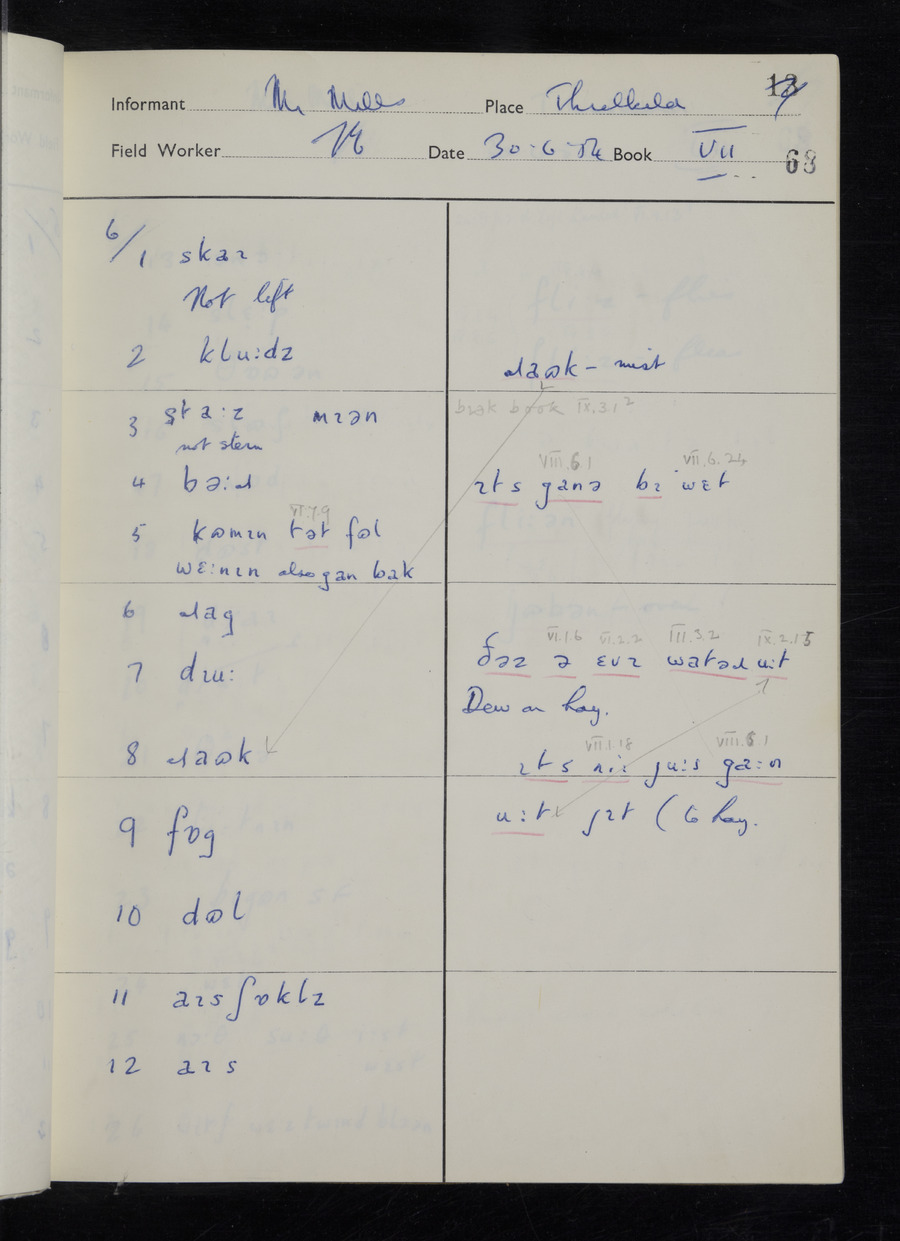 13
Informant Mr Mills Place Threlkeld
Field Worker Date 30-6-54 Book VII
63
6/1 skaɪ
Not left
2 kluːdz
3 staːz mɪən
not stern
VI.7.9
4 bəːd
5 kʊmɪn tət fʊl
wɛːnɪn also gan bak
6 dag
7 dɪuː
8 daʊk
9 fɒg
10 dʊl
11 aɪsʃɒklz
12 aɪs
daʊk – mist
bɪək book IX.3.1²
VIII.6.1 VII.6.24
ɪts ganə bɪ wɛt
VI.1.6 VI.2.2 III.3.2 IX.2.15
ðəz ə ɛvɪ watəd uːt
Dew on hay.
VII.1.18 VIII.6.1
ɪts nɪː juːs gaːn
uːt jɪt (to hay.